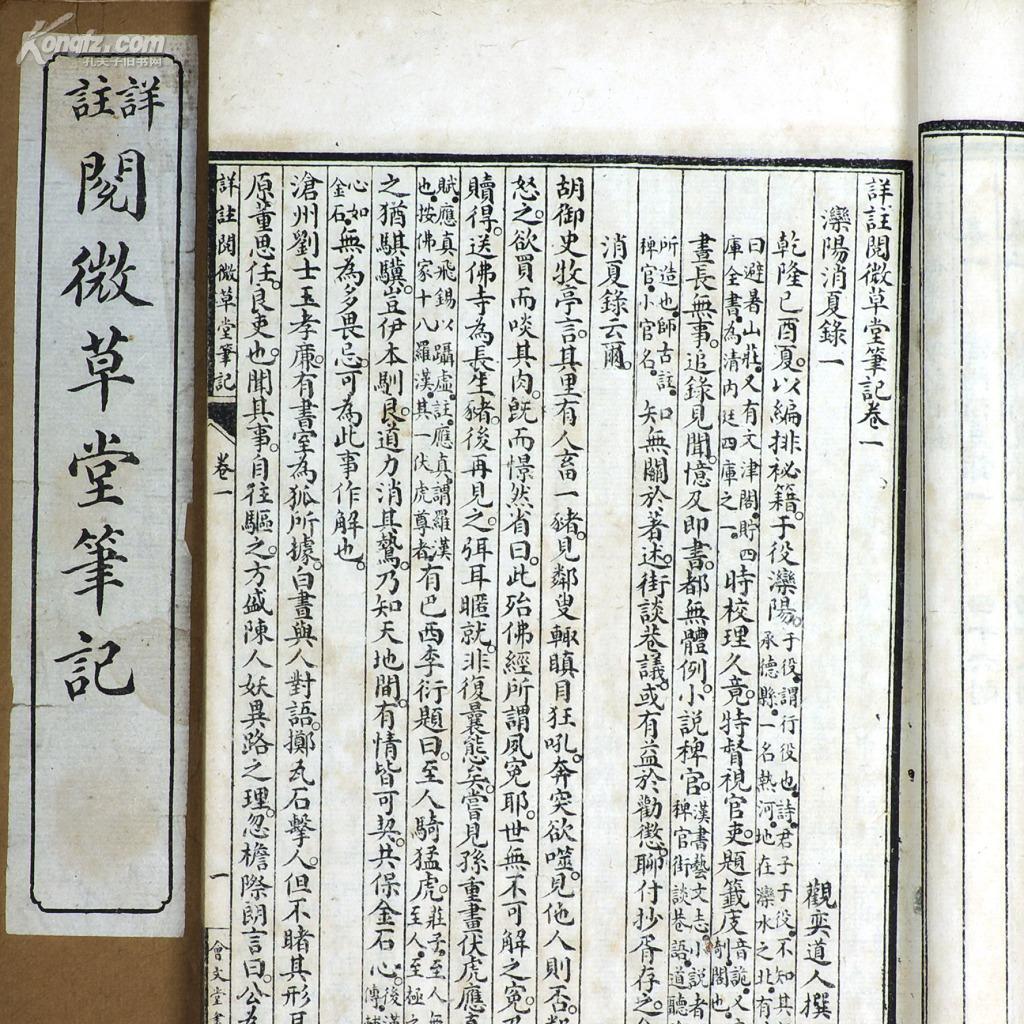 Kongfz.com
孔夫子旧书网
詳註
閱微草堂筆記
詳註閱微草堂筆記卷一
灤陽消夏錄一
觀奕道人撰
乾隆己酉夏。以編排祕籍。于役灤陽。于役。謂行役也。詩。君子于役。不知其
承德縣。一名熱河。地在灤水之北。有
曰避暑山莊。又有文津閣。貯四
庫全書。為清內廷四庫之一。時校理久竟。特督視官吏。題籤庋音詭。又
剞。閣也。
晝長無事。追錄見聞。憶及即書。都無體例。小說稗官。漢書藝文志。小說者
稗官。街談巷語。道聽
所造也。師古註
稗官。小官名。知無關於著述。街談巷議。或有益於勸懲。聊付抄胥存之。
消夏錄云爾。
胡御史牧亭言。其里有人畜一豬。見鄰叟輒瞋目狂吼。奔突欲噬。見他人則否。
怒之。欲買而啖其肉。既而憬然省曰。此殆佛經所謂夙冤耶。世無不可解之冤。乃
贖得。送佛寺為長生豬。後再見之。弭耳暱就。非復曩態矣。嘗見孫重畫伏虎應
賦。應真飛錫以躡虛。註。應真。謂羅漢
也。按佛家十八羅漢。其一伏虎尊者。有巴西李衍題曰。至人騎猛虎。莊子。至人無
至人。至極之
之猶騏驥。豈伊本馴良。道力消其鷙。乃知天地間。有情皆可契。共保金石心。後漢
傳
心如
金石。無為多畏忌。可為此事作解也。
滄州劉士玉孝廉。有書室為狐所據。白晝與人對語。擲瓦石擊人。但不睹其形
原董思任。良吏也。聞其事。自往驅之。方盛陳人妖異路之理。忽檐際朗言曰。公為
詳註閱微草堂筆記 卷一 一 會文堂